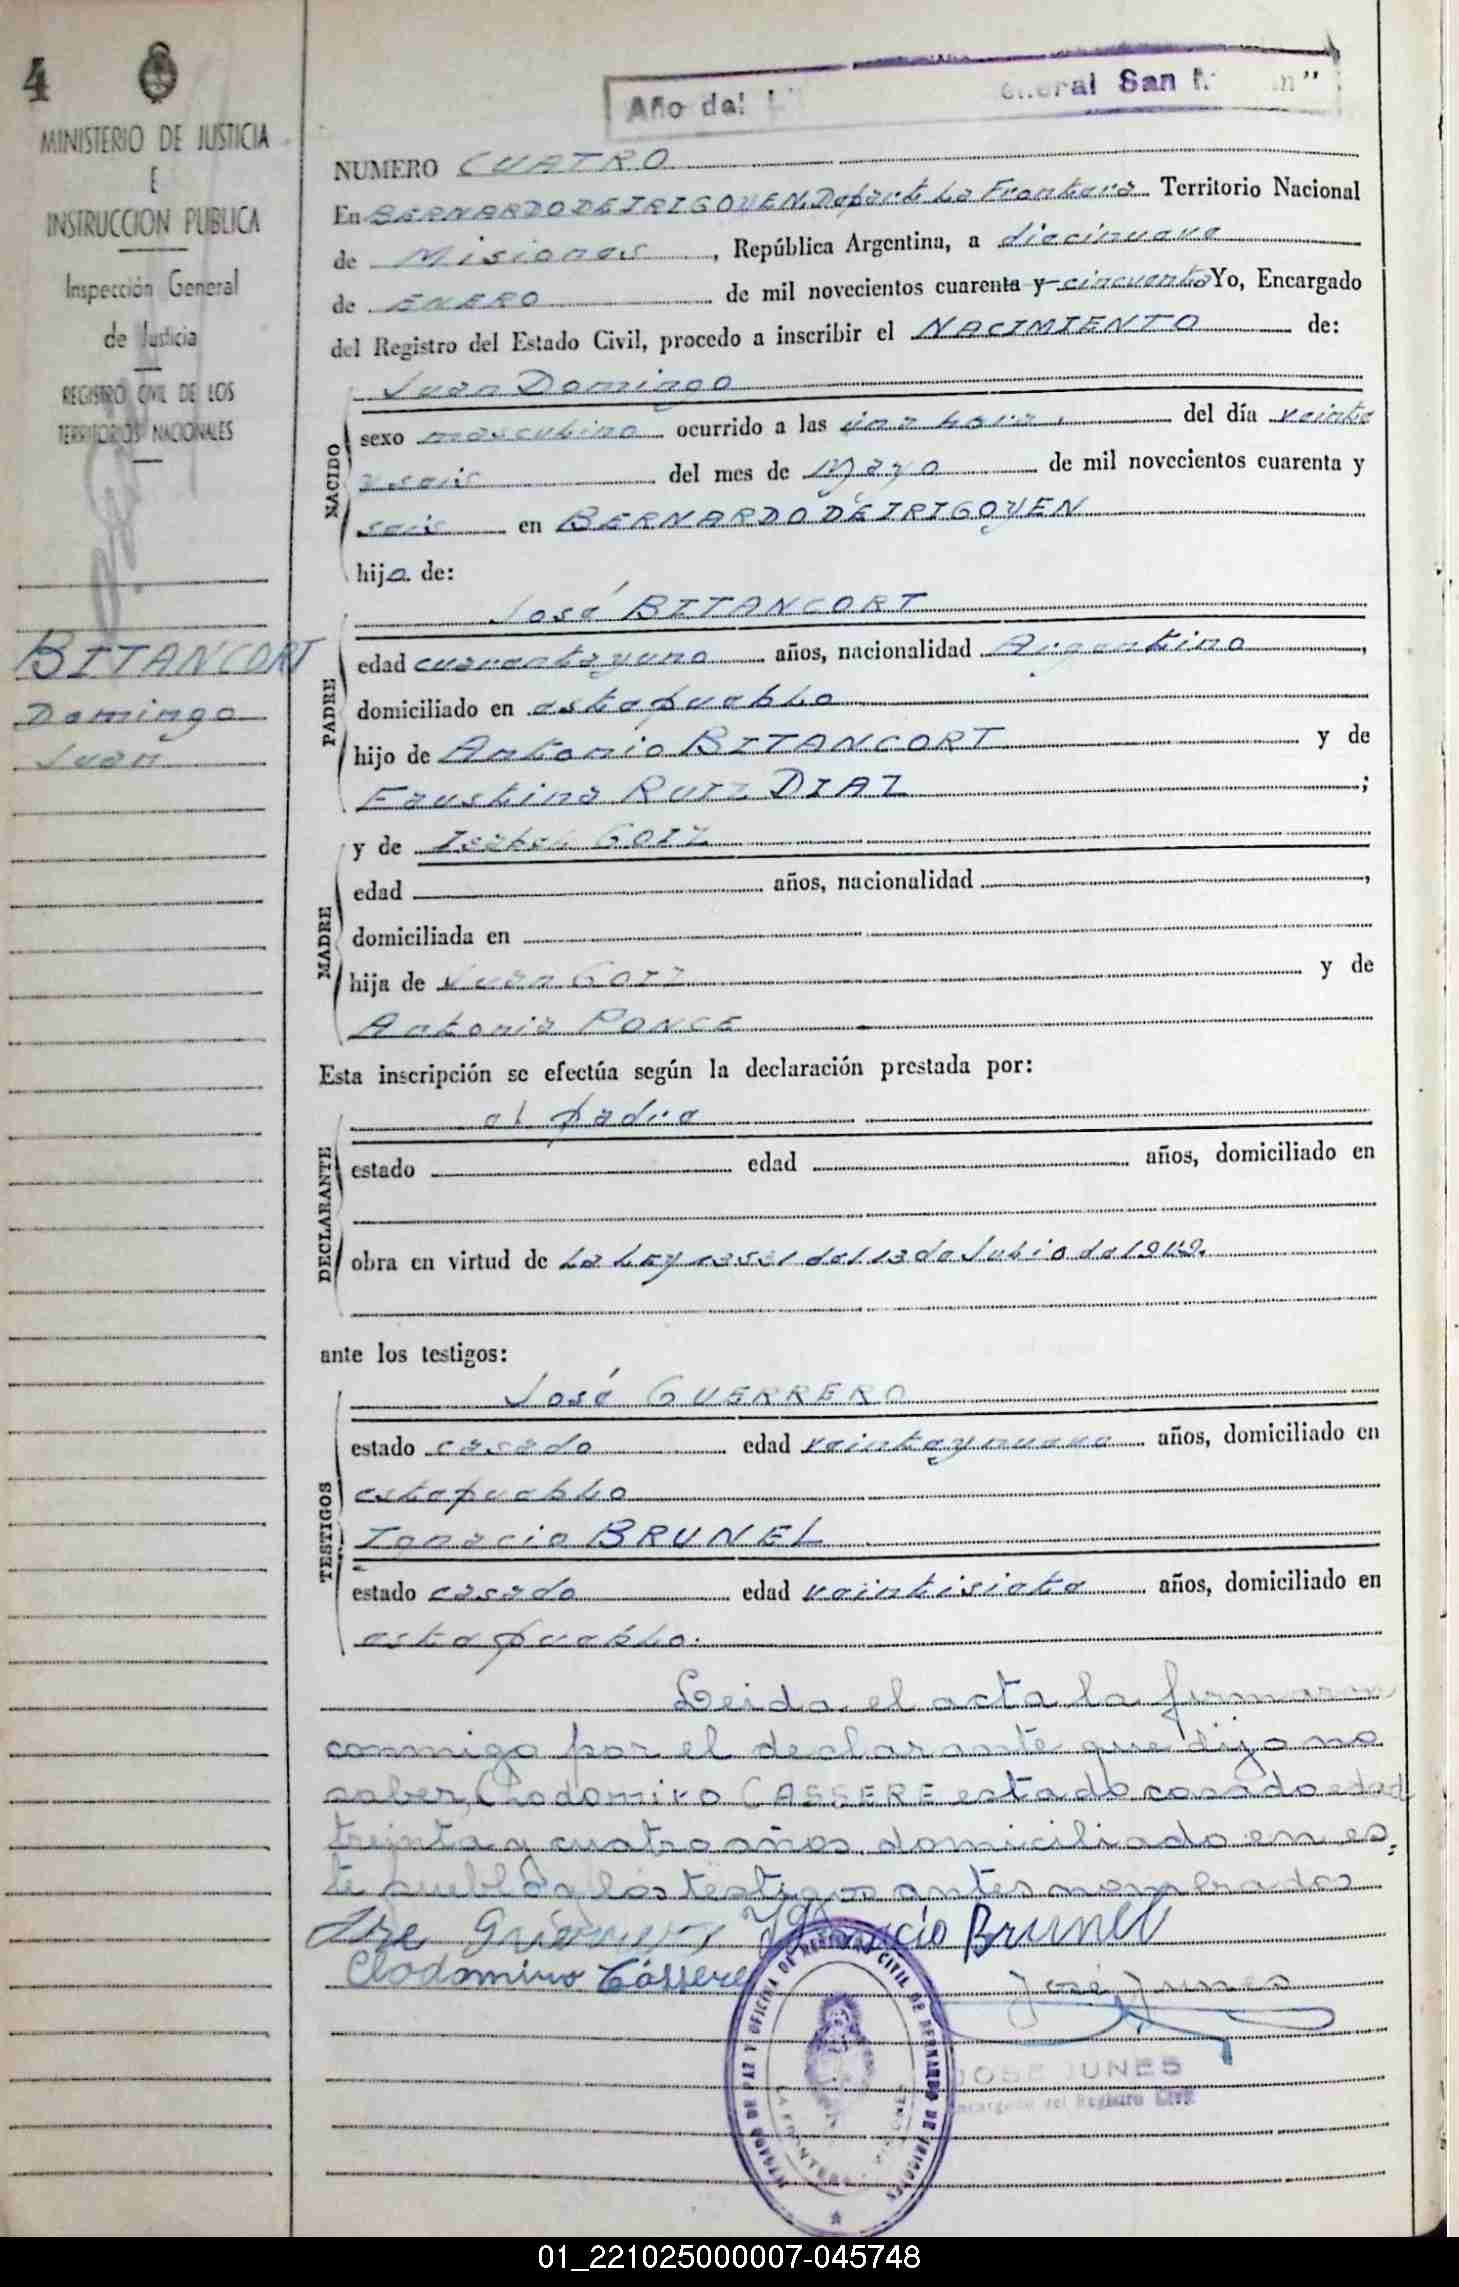 4
MINISTERIO DE JUSTICIA
E
INSTRUCCION PUBLICA
Inspección General
de Justicia
REGISTRO CIVIL DE LOS
TERRITORIOS NACIONALES
BITANCORT
Domingo
Juan
Año del General San
NUMERO CUATRO
En BERNARDO DE IRIGOYEN, Depart. La Frontera Territorio Nacional
de Misiones, República Argentina, a diecinueve
de ENERO de mil novecientos cuarenta y cincuenta Yo, Encargado
del Registro del Estado Civil, procedo a inscribir el NACIMIENTO de:
Juan Domingo
NACIDO
sexo masculino ocurrido a las una hora. del día veinte
y seis del mes de Mayo de mil novecientos cuarenta y
seis en BERNARDO DE IRIGOYEN
hijo de:
José BITANCORT
PADRE
edad cuarenta y uno años, nacionalidad Argentino,
domiciliado en este pueblo
hijo de Antonio BITANCORT y de
Faustina RUIZ DIAZ;
y de Isabel GOIZ
MADRE
edad años, nacionalidad,
domiciliada en
hija de Juan GOIZ y de
Antonia PONCE
Esta inscripción se efectúa según la declaración prestada por:
el padre
DECLARANTE
estado edad años, domiciliado en
obra en virtud de La Ley del 13 de Julio de 1949.
ante los testigos:
José GUERRERO
TESTIGOS
estado casado edad veinte y nueve años, domiciliado en
este pueblo
Ignacio BRUNEL
estado casado edad veintisiete años, domiciliado en
este pueblo.
Leida el acta la firmaron
conmigo por el declarante que dijo no
saber, Clodomiro CASSERE estado casado edad
treinta y cuatro años. domiciliado en es-
te pueblo y los testigos antes nombrados
Ignacio Brunel
Clodomiro Cássere
José Junes
JUZGADO DE PAZ Y OFICINA DE REGISTRO CIVIL DE BERNARDO DE IRIGOYEN
LA FRONTERA - MISIONES
JOSE JUNES
Encargado del Registro Civil
01_221025000007-045748